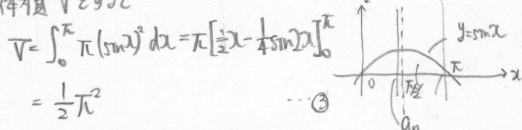 V = ∫₀^π π(sin x)² dx = π[½x − ¼ sin 2x]₀^π
= ½π² … ③
y = sin x
0 π/2 π x
aₙ